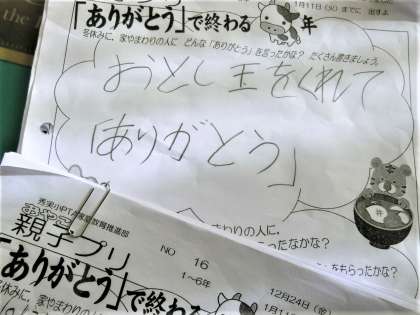 1月11日(火)までに 出すよ
「ありがとう」で終わる 年
冬休みに、家やまわりの人に どんな「ありがとう」を言ったかな? たくさん書きましょう。
おとし玉をくれて
「ありがとう」
の人に、
かな?
もらったかな?
親子プリ
NO 16
1～6年
「ありがとう」で終わる
12月24日(金)
1月11
冬休みに、家やまわりの人に